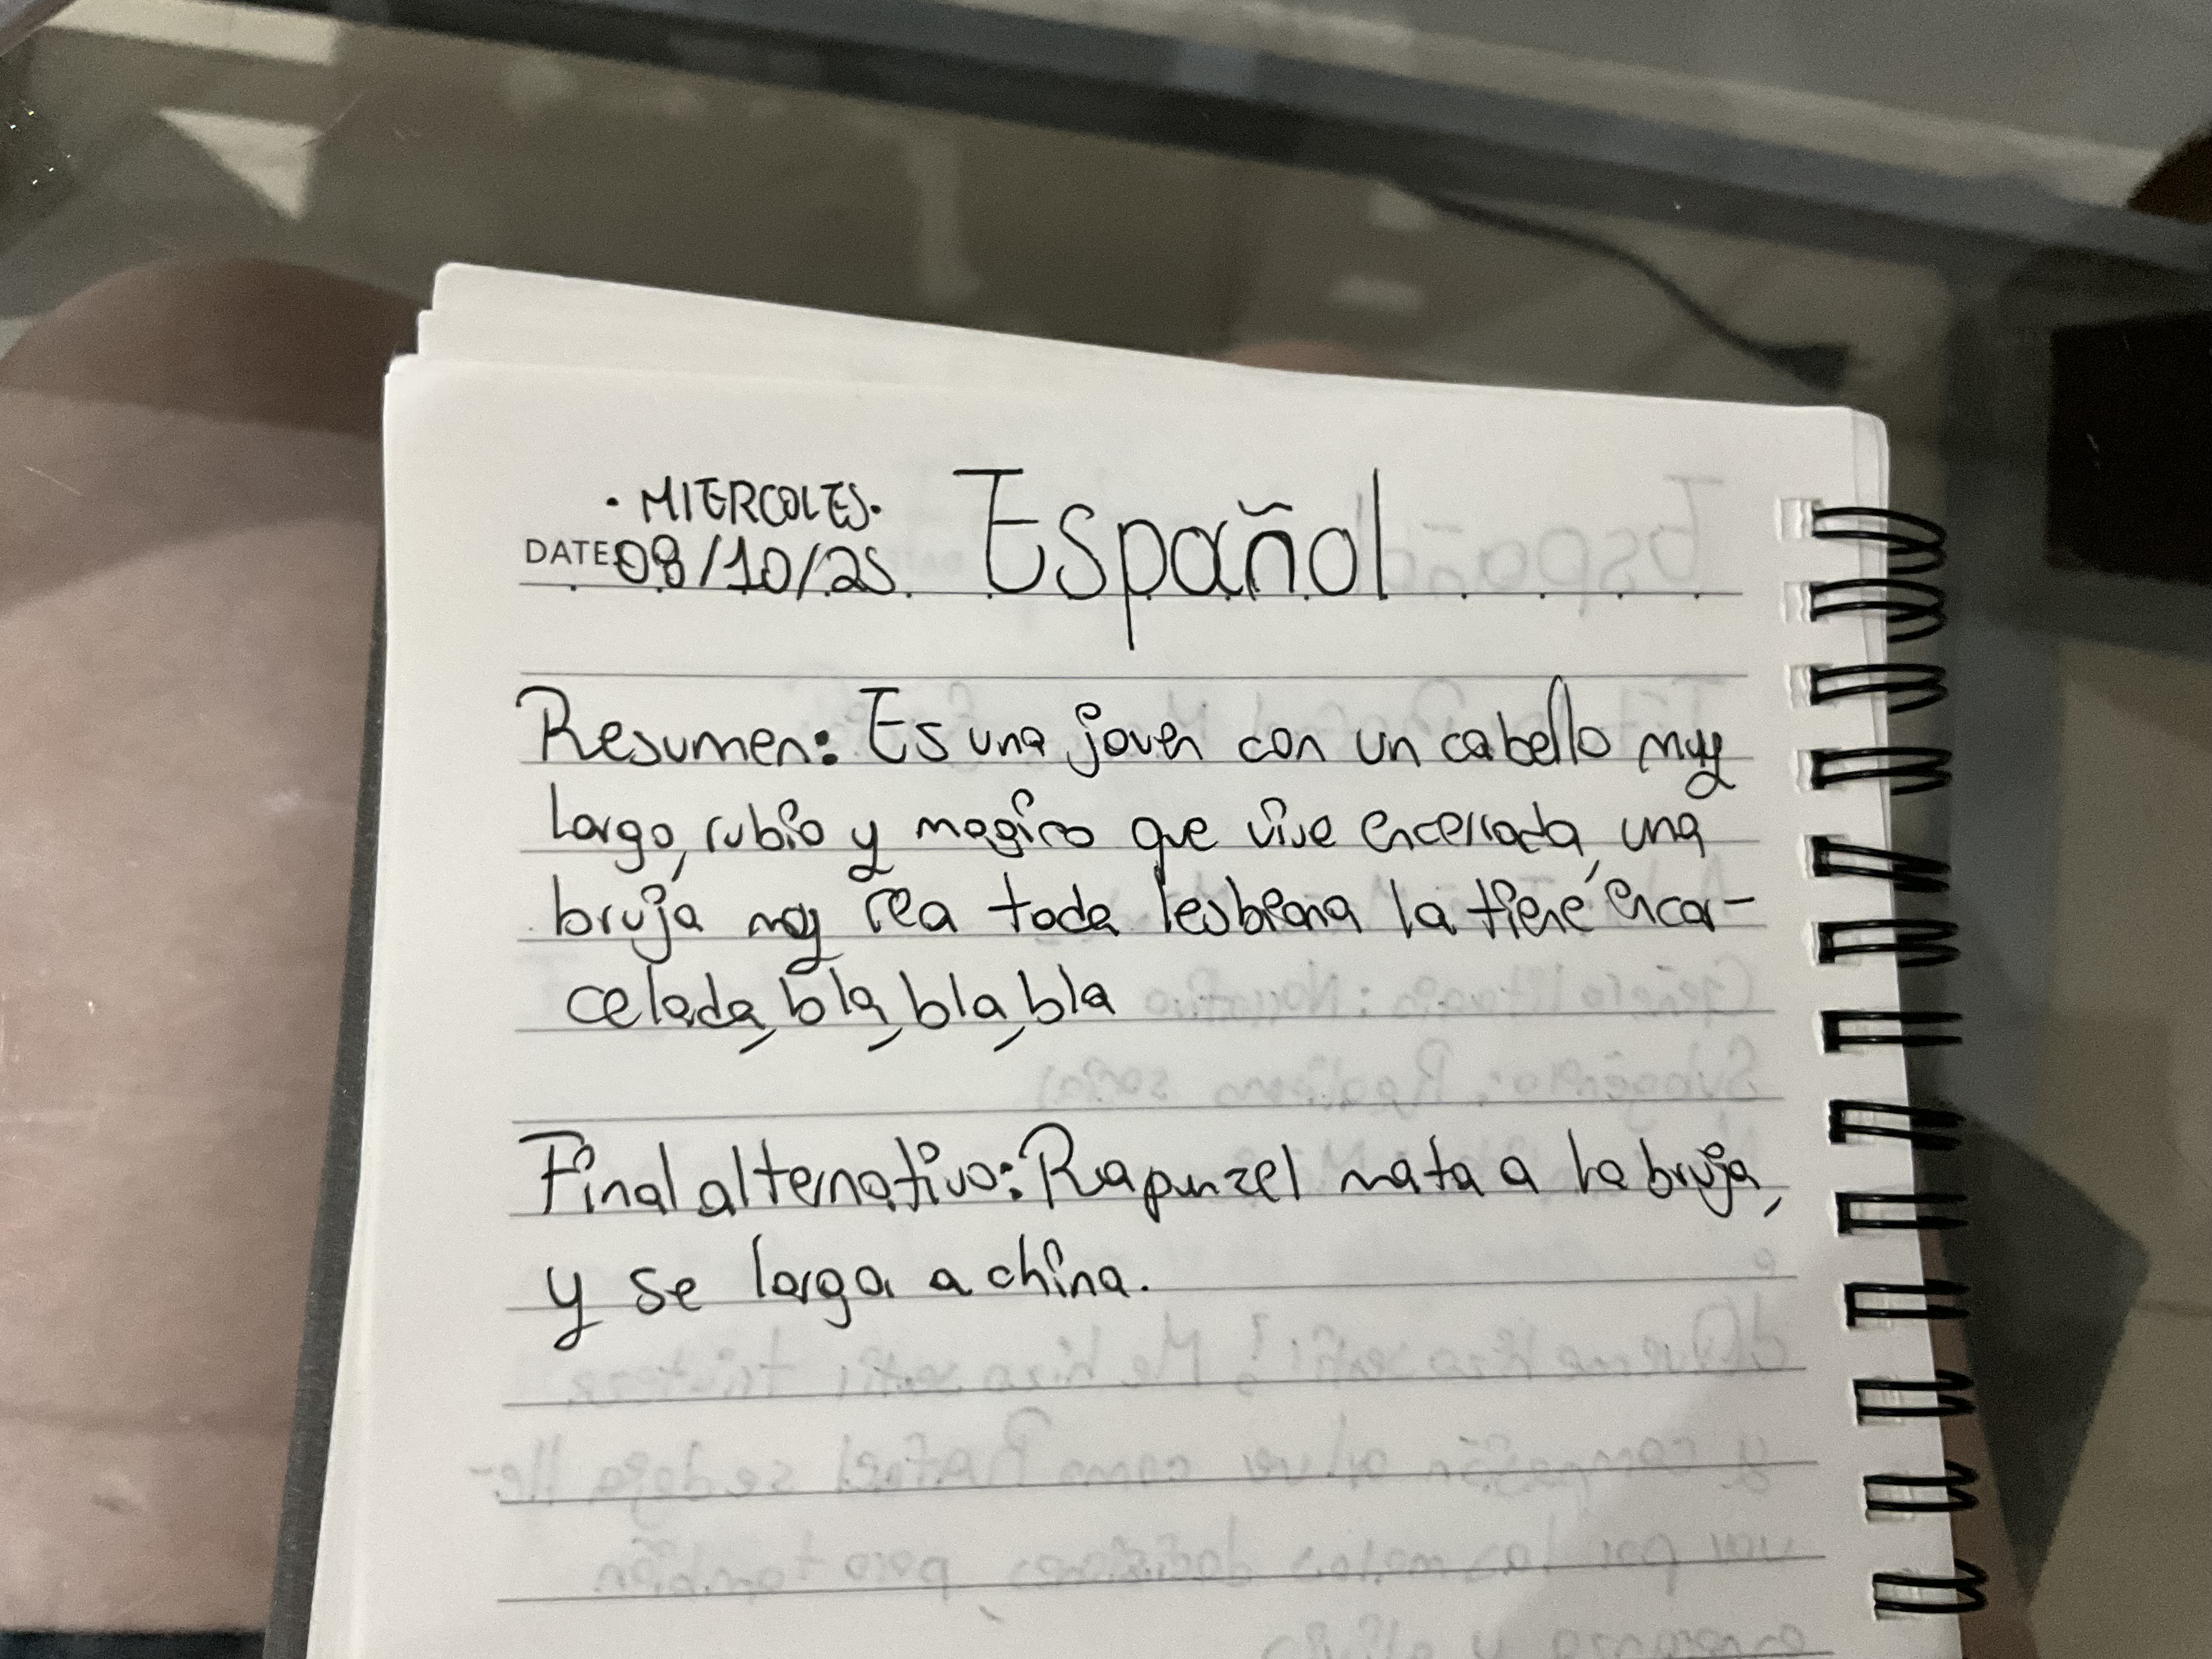 · MIERCOLES.
DATE: 08/10/25 Español
Resumen: Es una joven con un cabello muy
largo, rubio y magico que vive encerrada, una
bruja muy fea toda lesbiana la tiene encar-
celada, bla, bla, bla
Final alternativo: Rapunzel mata a la bruja,
y se larga a china.